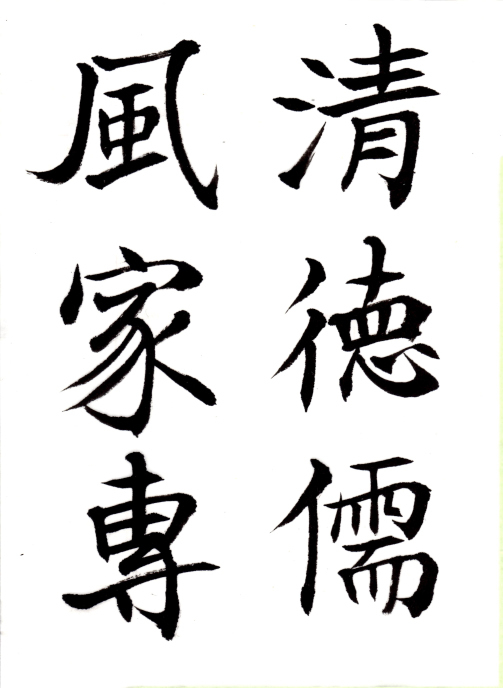 清德儒
風家專